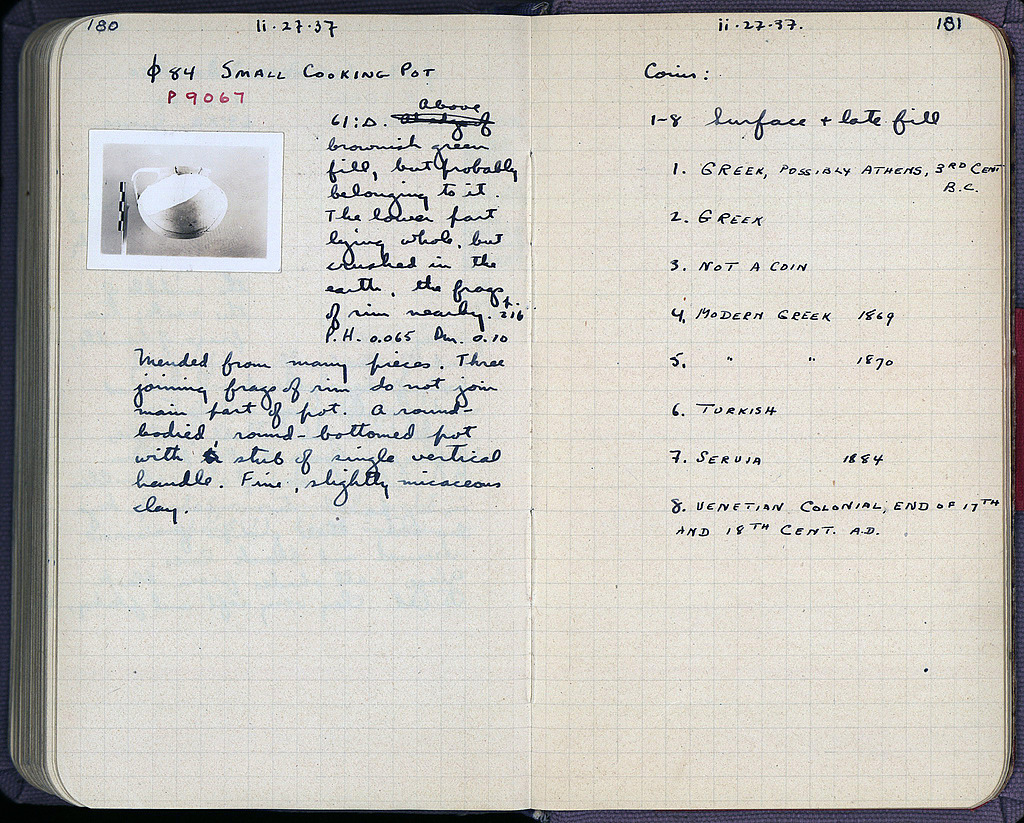 180
ii·27·37
ϕ 84 SMALL COOKING POT
P 9067
Above
61:Δ. At edge of
brownish green
fill, but probably
belonging to it.
The lower part
lying whole, but
crushed in the
earth, the frags
of rim nearby. p. 216
P.H. 0.065 Dm. 0.10
Mended from many pieces. Three
joining frags of rim do not join
main part of pot. A round-
bodied, round-bottomed pot
with stub of single vertical
handle. Fine, slightly micaceous
clay.
ii·27·37.
181
Coins:
1-8 Surface + late fill
1. GREEK, POSSIBLY ATHENS, 3RD CENT
B.C.
2. GREEK
3. NOT A COIN
4. MODERN GREEK 1869
5. " " 1870
6. TURKISH
7. SERVIA 1884
8. VENETIAN COLONIAL, END OF 17TH
AND 18TH CENT. A.D.